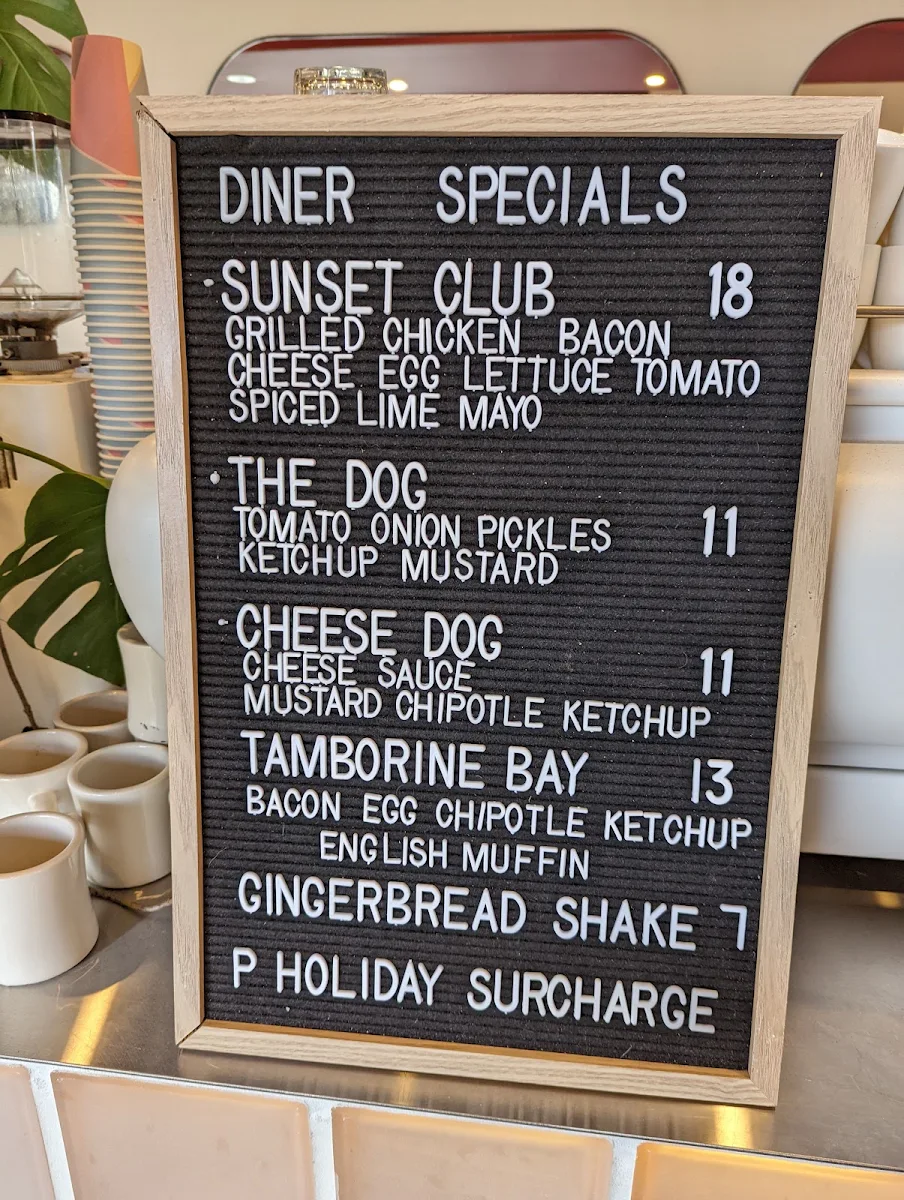 DINER SPECIALS
· SUNSET CLUB 18
GRILLED CHICKEN BACON
CHEESE EGG LETTUCE TOMATO
SPICED LIME MAYO
· THE DOG
TOMATO ONION PICKLES 11
KETCHUP MUSTARD
· CHEESE DOG
CHEESE SAUCE 11
MUSTARD CHIPOTLE KETCHUP
TAMBORINE BAY 13
BACON EGG CHIPOTLE KETCHUP
ENGLISH MUFFIN
GINGERBREAD SHAKE 7
P HOLIDAY SURCHARGE